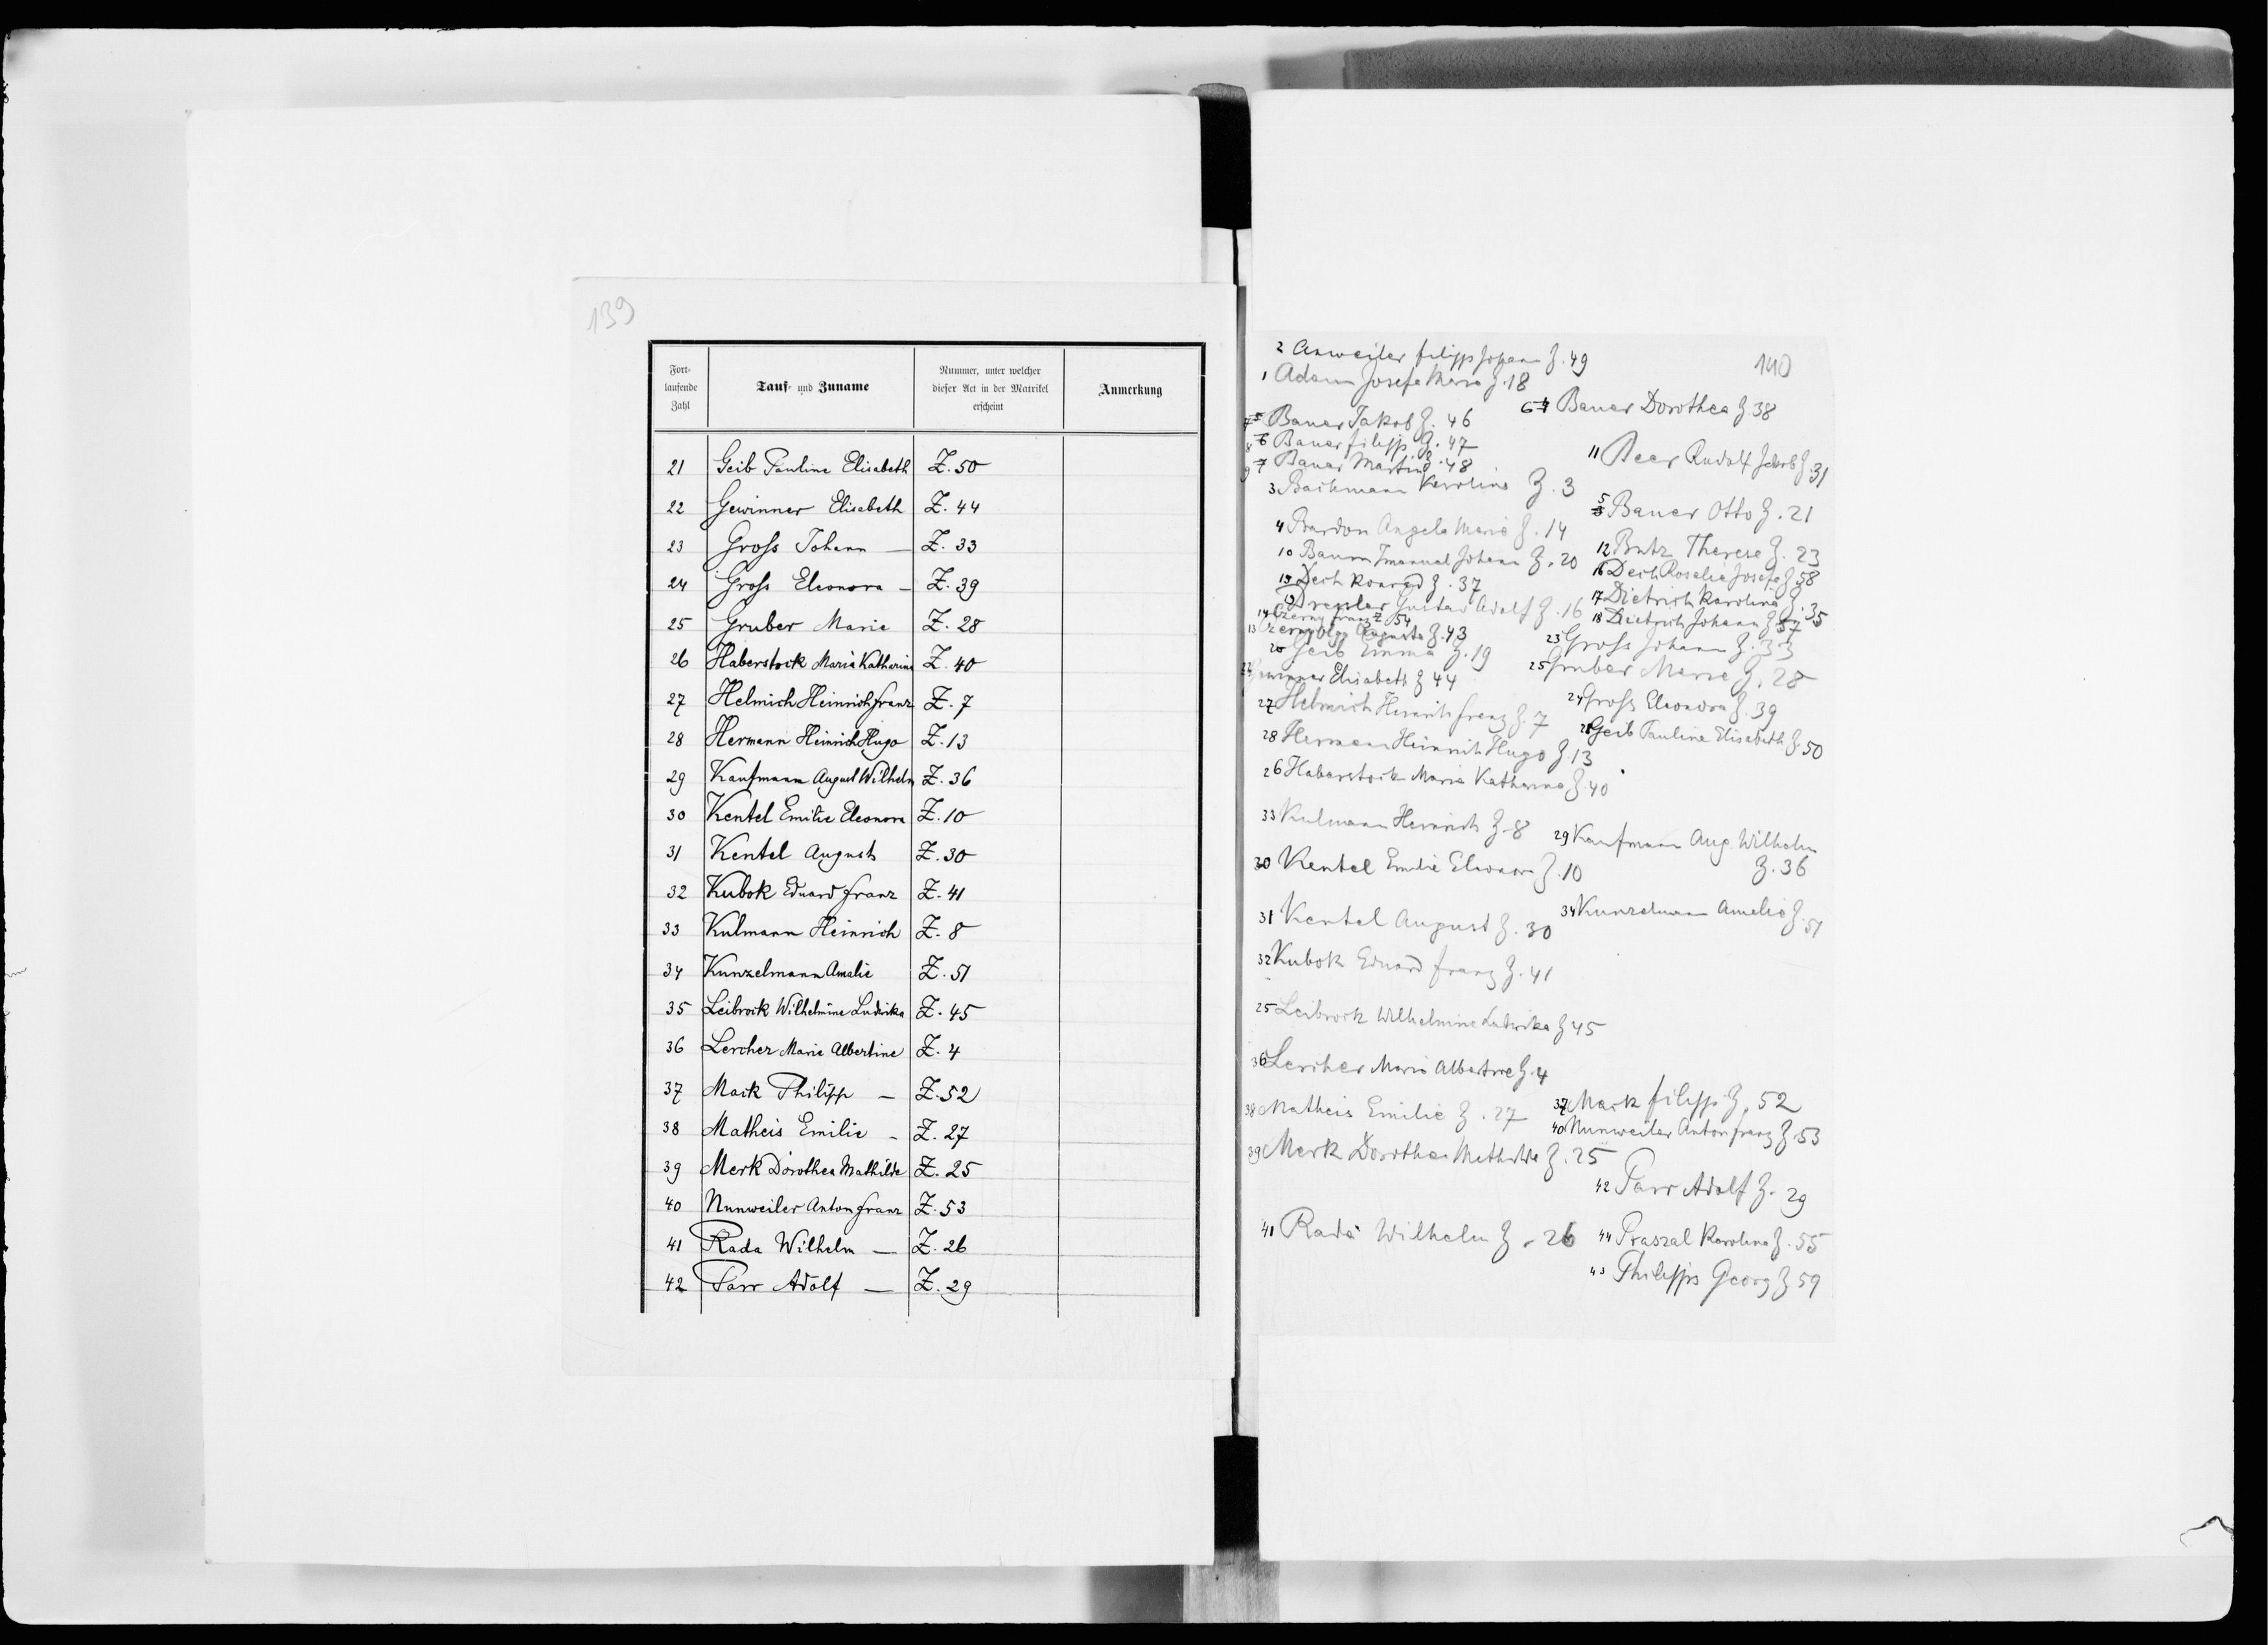 139
Fort-
laufende
Zahl
Tauf- und Zuname
Nummer, unter welcher
dieser Act in der Matrikel
erscheint
Anmerkung
21 Geib Pauline Elisabeth Z. 50
22 Gewinner Elisabeth Z. 44
23 Groß Johann — Z. 33
24 Groß Eleonora — Z. 39
25 Gruber Marie Z. 28
26 Haberstock Maria Katharina Z. 40
27 Helmich Heinrich Franz Z. 7
28 Hermann Heinrich Hugo Z. 13
29 Kaufmann August Wilhelm Z. 36
30 Kentel Emilie Eleonora Z. 10
31 Kentel August Z. 30
32 Kubok Eduard Franz Z. 41
33 Kulmann Heinrich Z. 8
34 Kunzelmann Amalie Z. 51
35 Leibrock Wilhelmine Ludwika Z. 45
36 Lercher Marie Albertine Z. 4
37 Mack Philipp — Z. 52
38 Matheis Emilie - Z. 27
39 Merk Dorothea Mathilde Z. 25
40 Nunweiler Anton Franz Z. 53
41 Rada Wilhelm — Z. 26
42 Parr Adolf — Z. 29
140
2 Anweiler Filipp Johann Z. 49
1 Adam Josefa Maria Z. 18
6 4 Bauer Dorothea Z 38
7 5 Bauer Jakob Z. 46
8 6 Bauer Filipp Z. 47
9 7 Bauer Martin Z. 48
11 Beer Rudolf Jakob Z. 31
3 Bachmann Karolina Z. 3
5 3 Bauer Otto Z. 21
4 Bardon Angela Maria Z. 14
12 Butz Therese Z. 23
10 Baum Imanuel Johann Z. 20
16 Dech Rosalia Josefa Z 58
15 Dech Konrad Z. 37
17 Dietrich Karolina Z. 35
19 Drexler Gustav Adolf Z. 16
18 Dietrich Johann Z 57
14 Czerny Franz Z 54
13 Augusta Z. 43
23 Groß Johann Z. 33
20 Geib Emma Z. 19
25 Gruber Marie Z. 28
22 Gewinner Elisabeth Z 44
24 Groß Eleonora Z. 39
27 Helmich Heinrich Franz Z. 7
21 Geib Pauline Elisabeth Z. 50
28 Hermann Heinrich Hugo Z 13
26 Haberstock Maria Katharina Z. 40
33 Kulmann Heinrich Z. 8
29 Kaufmann Aug. Wilhelm
Z. 36
30 Kentel Emilie Eleonora Z. 10
34 Kunzelmann Amelie Z. 51
31 Kentel August Z. 30
32 Kubok Eduard Franz Z. 41
25 Leibrock Wilhelmine Ludwika Z 45
36 Lercher Maria Albertine Z. 4
37 Mack Filipp Z. 52
38 Matheis Emilie Z. 27
40 Nunweiler Anton Franz Z. 53
39 Merk Dorothea Mathilde Z. 25
42 Parr Adolf Z. 29
41 Rada Wilhelm Z. 26
44 Praszal Karolina Z. 55
43 Philipps Georg Z 59